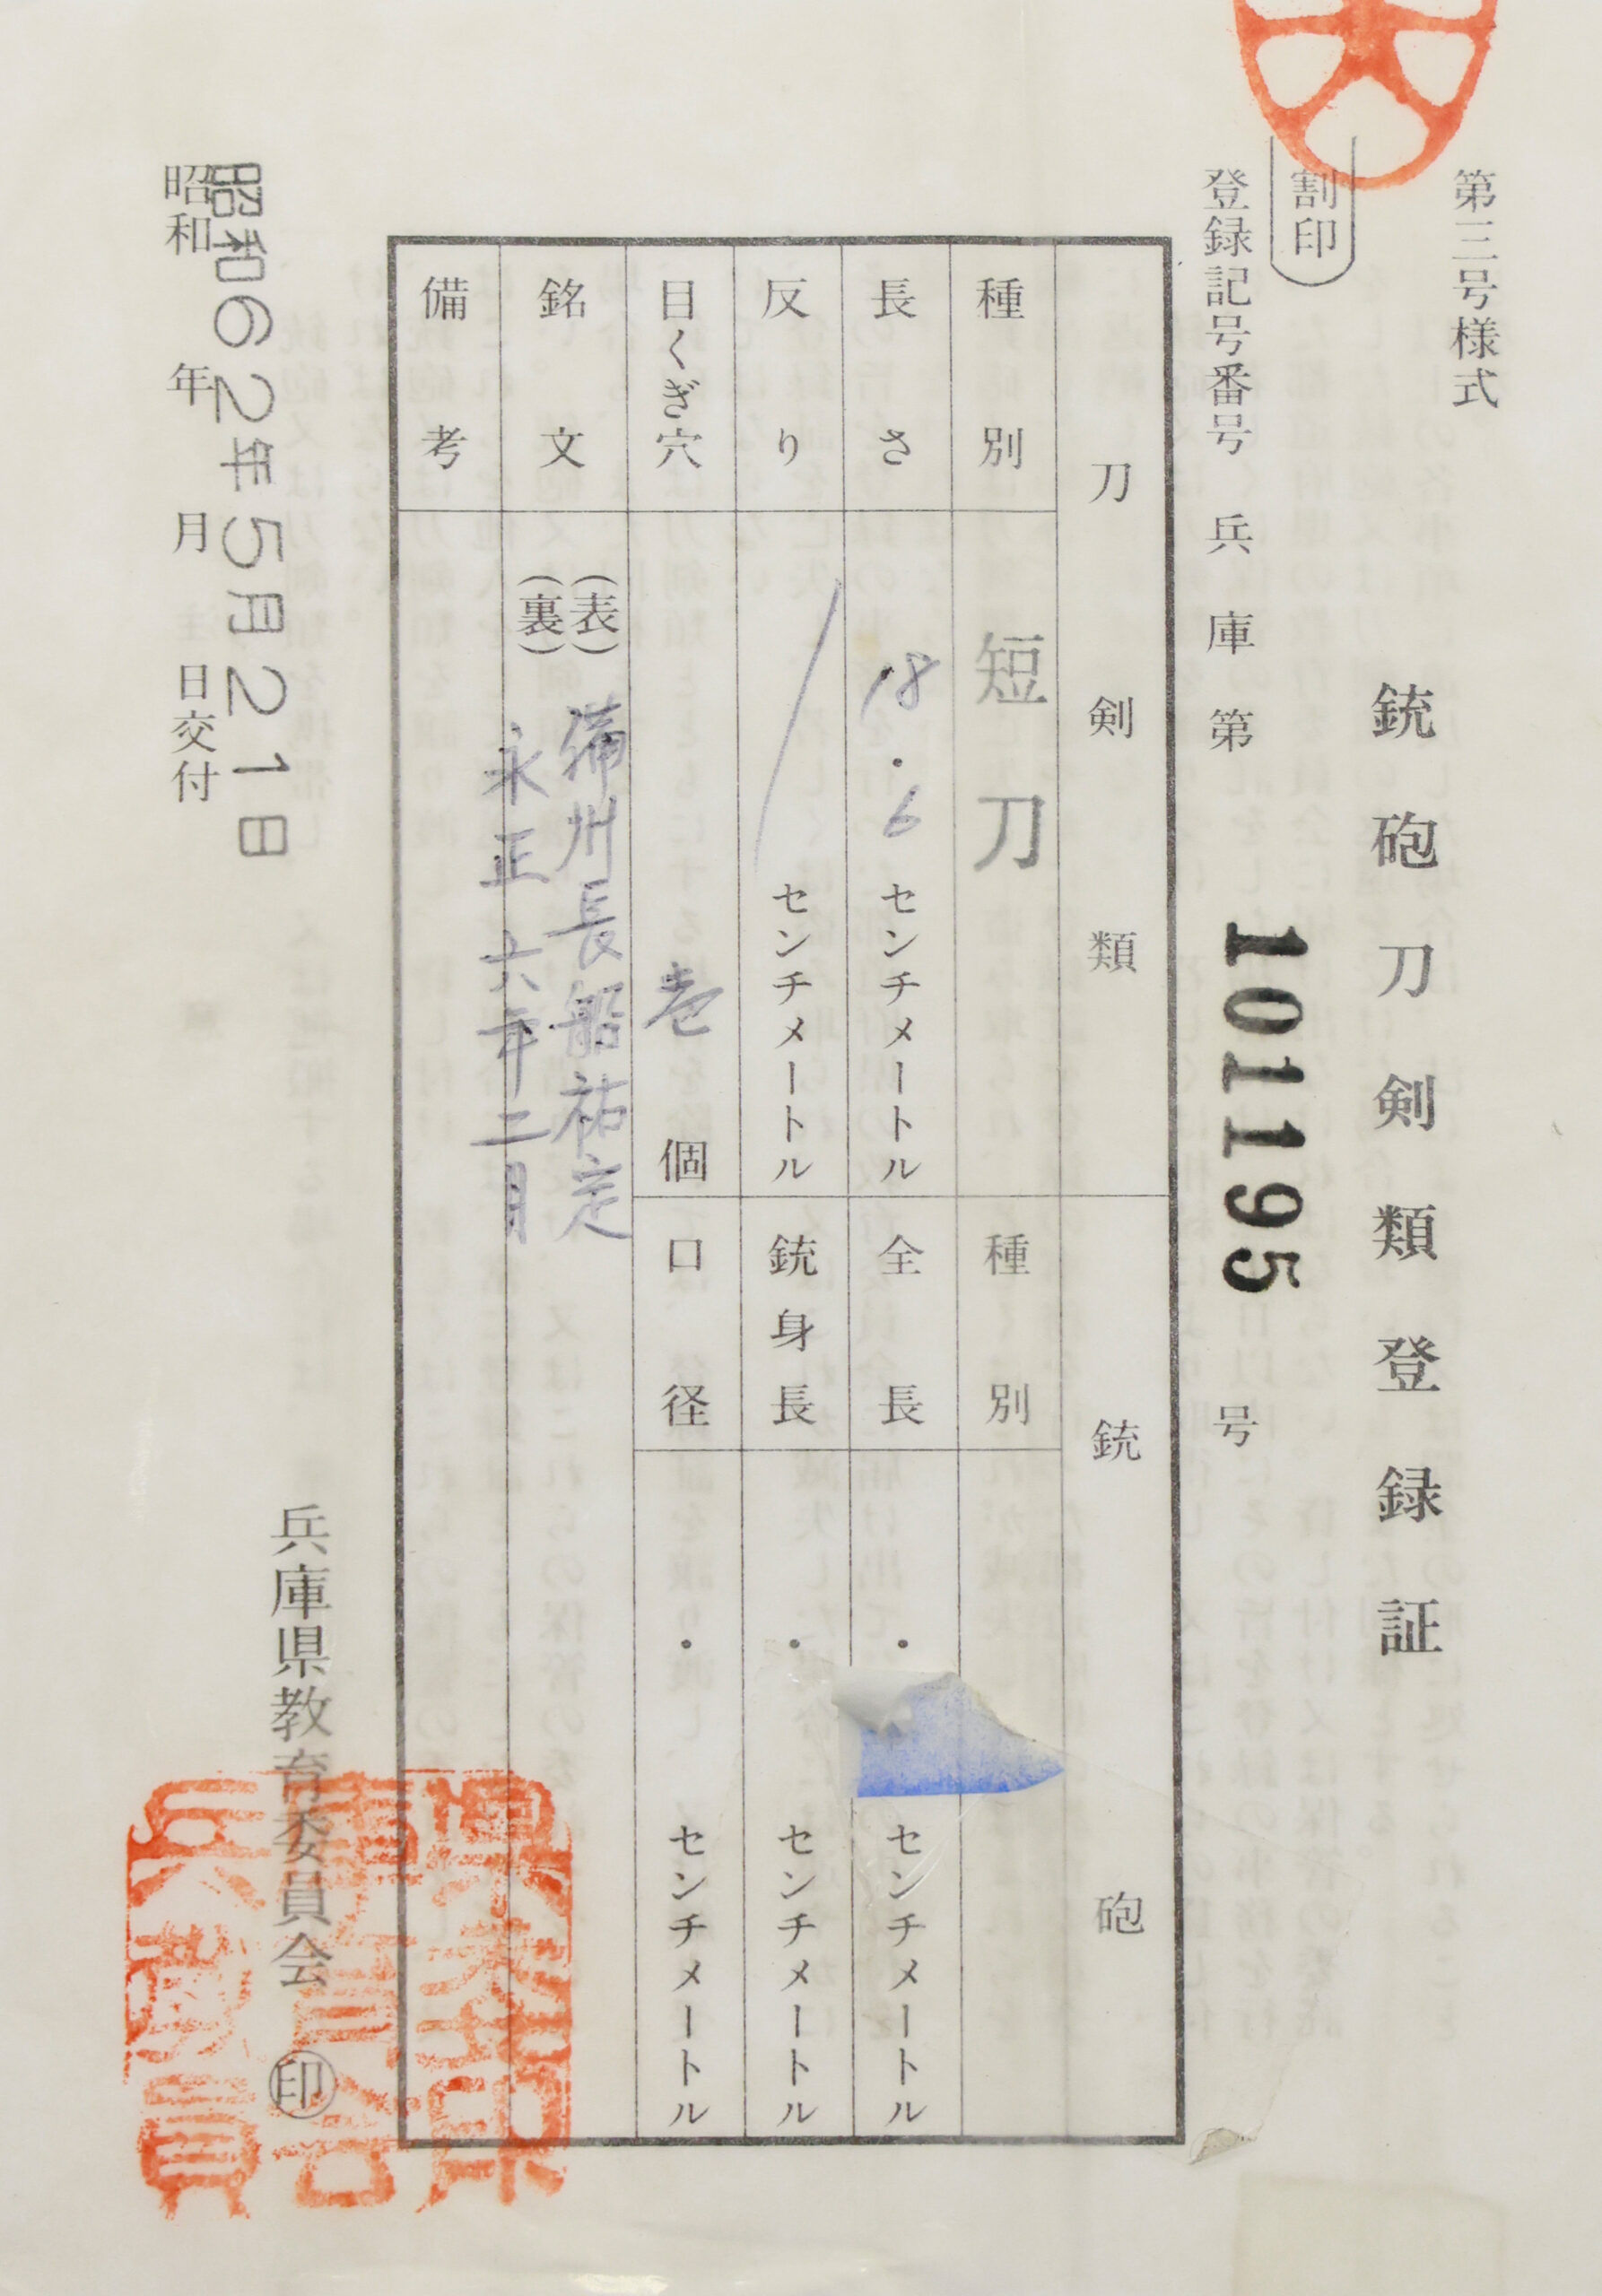 第三号様式
銃砲刀剣類登録証
割印
登録記号番号 兵庫第 101195 号
刀剣類
種別 短刀
長さ 18.6 センチメートル
反り センチメートル
目くぎ穴 壱 個
銘文 (表) 備州長船祐定
(裏) 永正六年二月
備考
銃砲
種別
全長 ・ センチメートル
銃身長 ・ センチメートル
口径 ・ センチメートル
昭和62年5月21日
昭和 年 月 日交付
兵庫県教育委員会 印